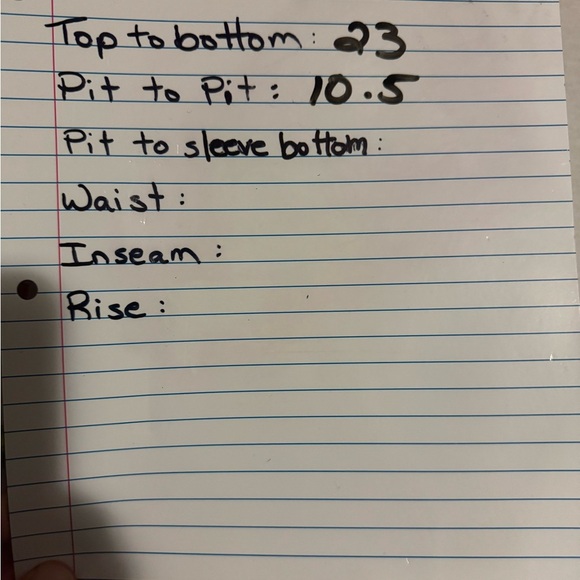 Top to bottom: 23
Pit to Pit: 10.5
Pit to sleeve bottom:
Waist:
Inseam:
Rise: